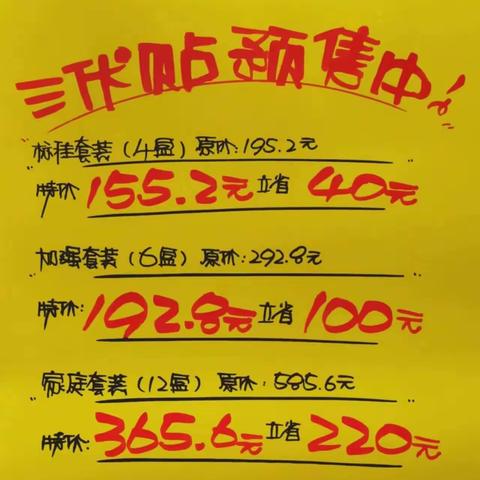 三伏贴预售中！
"标准套装（4盒）原价:195.2元"
特价155.2元立省40元
"加强套装（6盒）原价:292.8元"
特价:192.8元立省100元
"家庭套装（12盒）原价:585.6元"
特价:365.6元立省220元